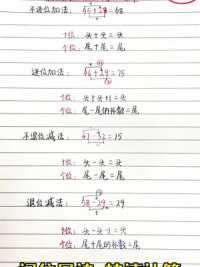 不进位加法: 45+23=68
十位: 头+头=头
个位: 尾+尾=尾
进位加法: 46+29=75
十位: 头+头+1=头
个位: 尾-尾的补数=尾
不退位减法: 47-32=15
十位: 头-头=头
个位: 尾-尾=尾
退位减法: 58-29=29
十位: 头-头-1=头
个位: 尾+尾的补数=尾